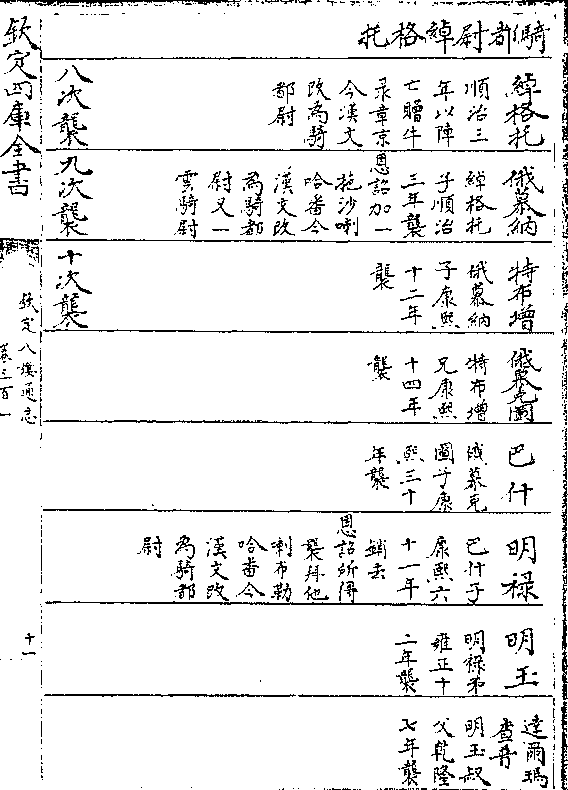 騎都尉綽格托
綽格托
順治三
年以陣
亡贈牛
录章京
今漢文
改為騎
都尉
八次襲
俄慕納
綽格托
子順治
三年襲
恩詔加一
拖沙喇
哈番今
漢文改
為騎都
尉又一
雲騎尉
九次襲
特布增
俄慕納
子康熙
十二年
襲
十次襲
俄慕克圖
特布增
兄康熙
十四年
襲
巴什
俄慕克
圖子康
熙三十
年襲
明禄
巴什子
康熙六
十一年
銷去
恩詔所得
襲拜他
喇布勒
哈番今
漢文改
為騎都
尉
明玉
明禄弟
雍正十
二年襲
達爾瑪
查普
明玉叔
父乾隆
七年襲
欽定四庫全書
欽定八旗通志
卷三百一
十一